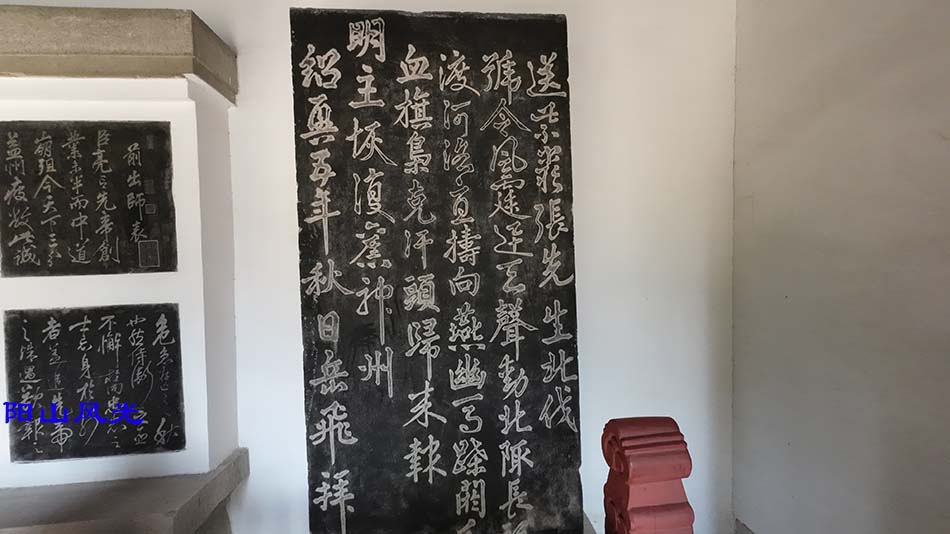 送紫巖張先生北伐
號令風霆迅天聲動北陬長
渡河洛直擣向燕幽馬蹀閼
血旗梟克汗頭歸来報
明主恢復舊神州
紹興五年秋日岳飛拜
前出師表
臣亮言先帝創
業未半而中道
崩殂今天下三分
益州疲敝此誠
危急存亡之秋
也然侍衛之臣
不懈於內忠志之
士忘身於外
者蓋追先帝
之殊遇欲報之
阳山风光